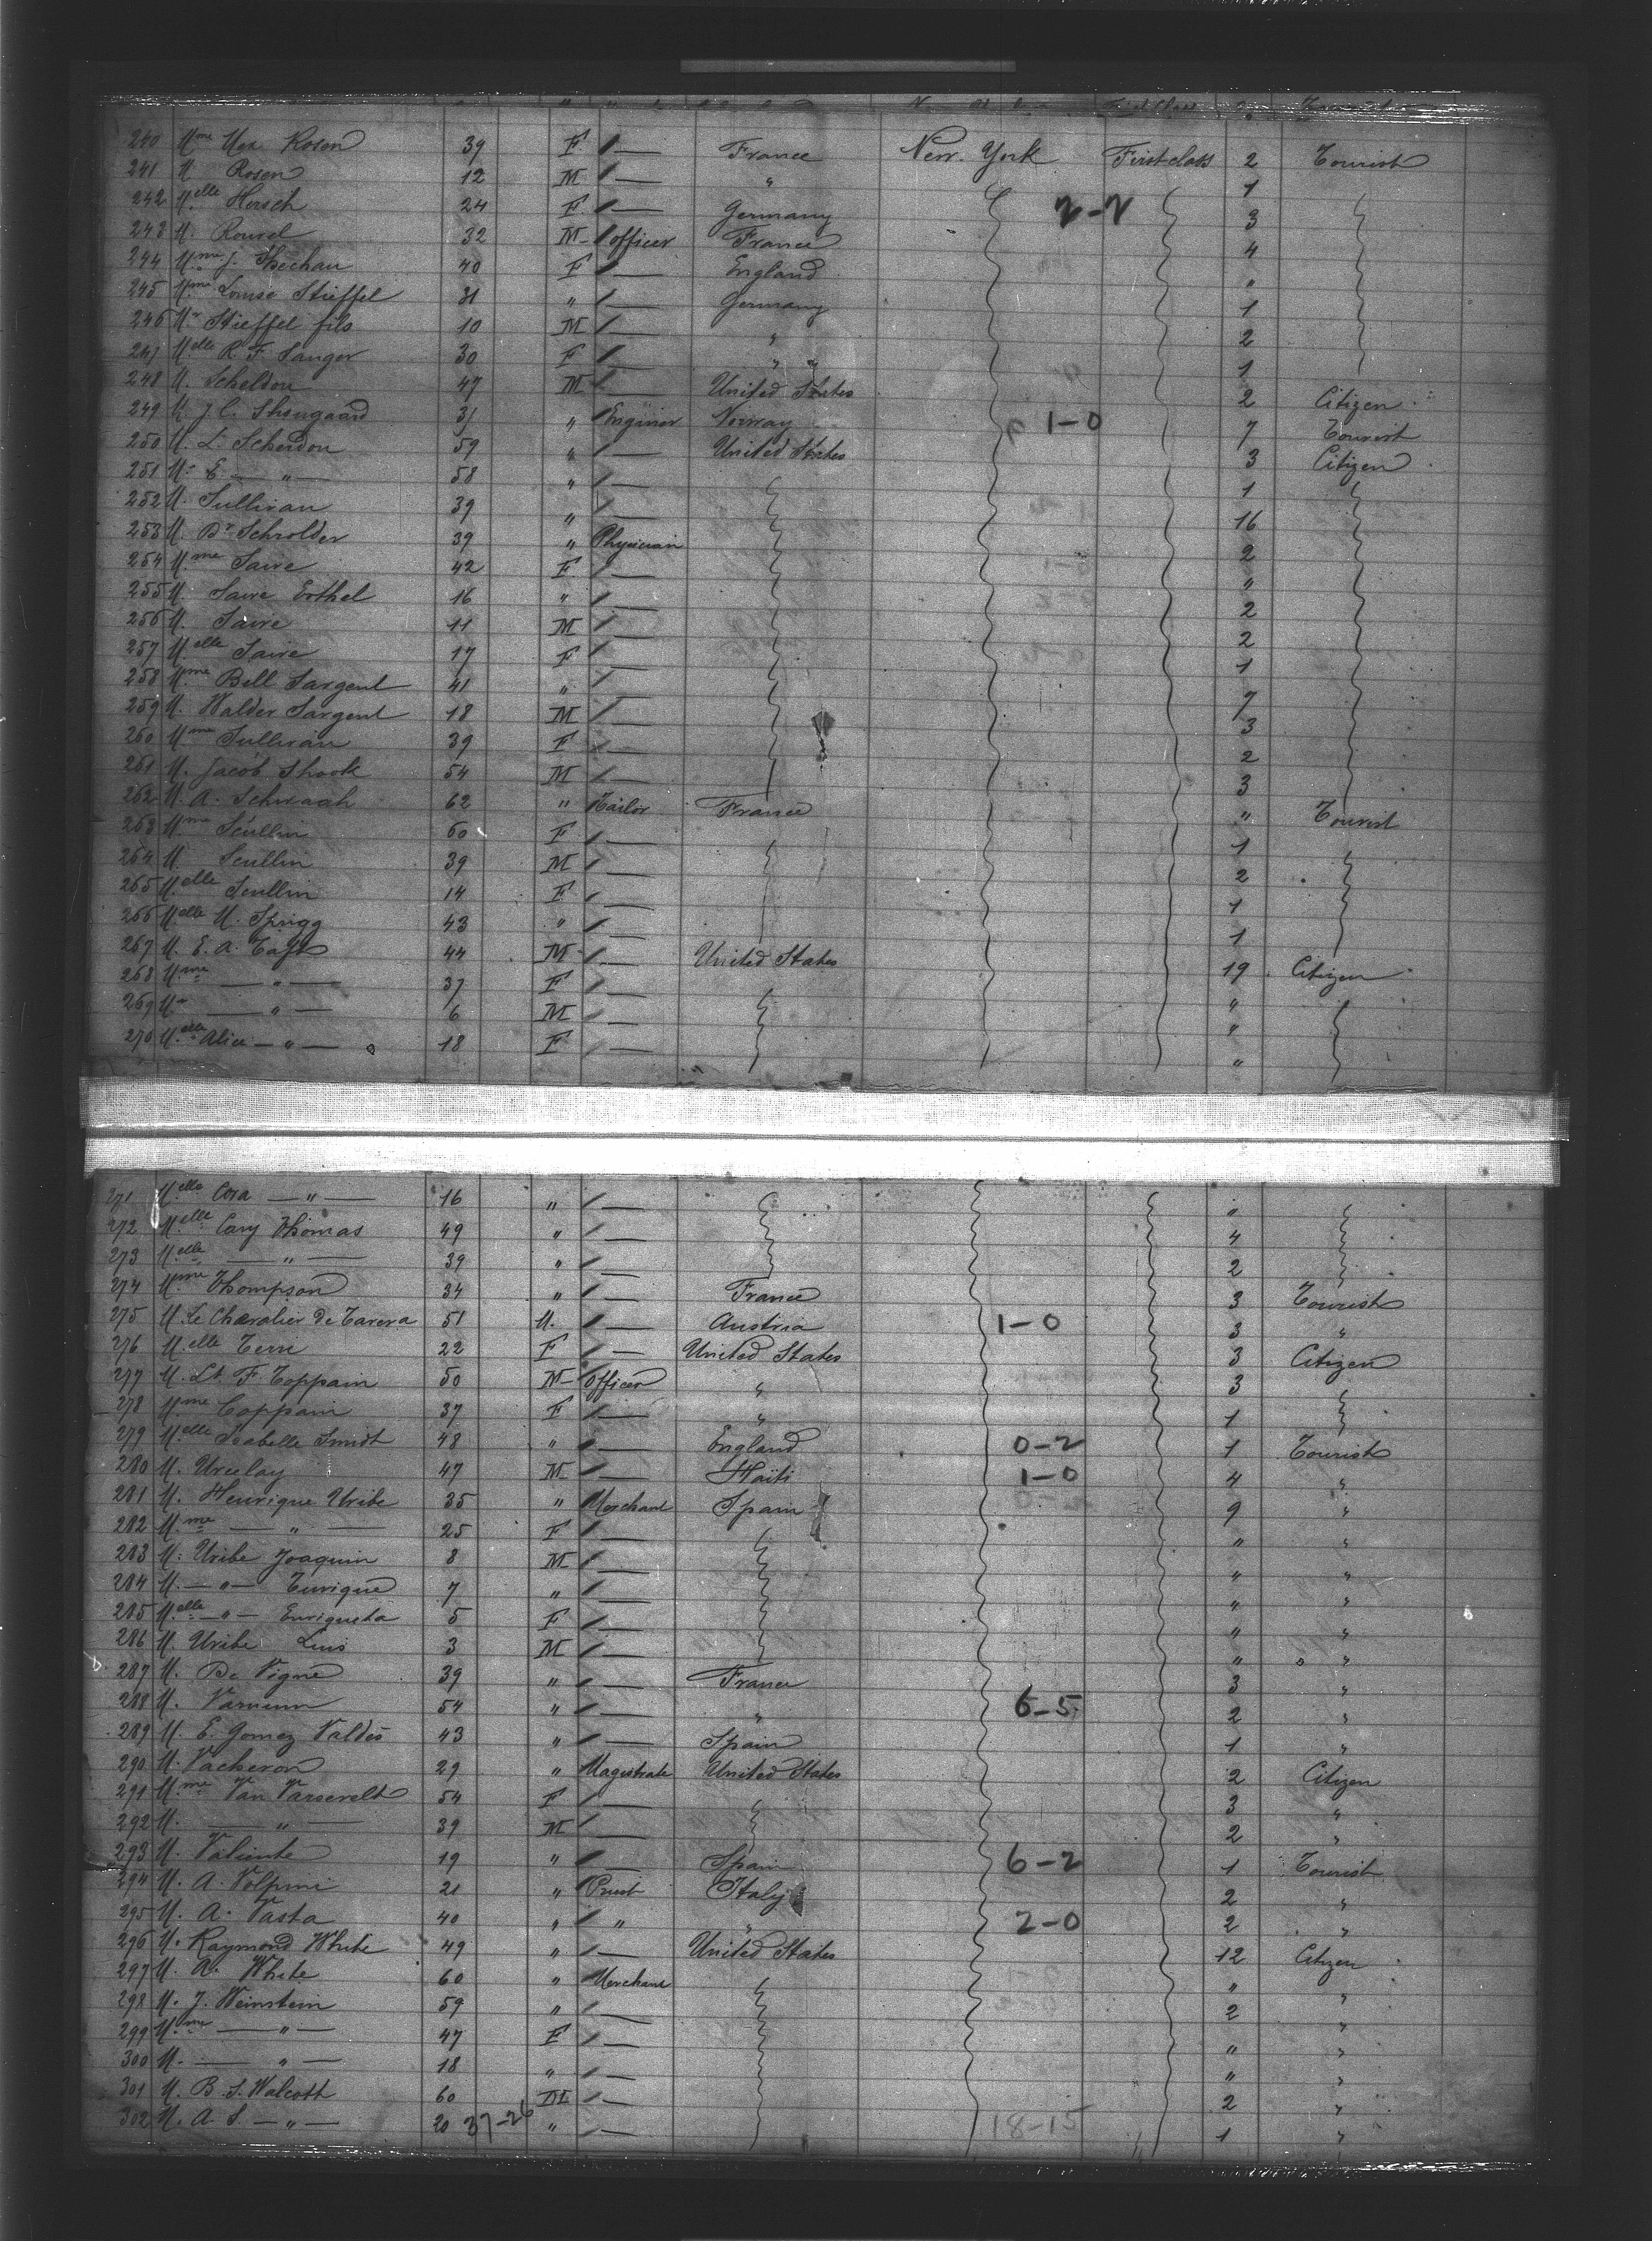 240 Mme Max Rosen 39 F — France New-York First class 2 Tourist
241 M Rosen 12 M — " 1
242 Melle Hersch 24 F — Germany 2-2 3
243 M. Rouvel 32 M officer France 4
244 Mme J. 40 F — England "
245 Mme Louise Stieffel 31 " — Germany 1
246 Mr Stieffel fils 10 M — " 2
247 Melle R. F. Sanger 30 F — " 1
248 M. Scheldon 47 M — United States 2 Citizen
249 M. J C. 31 " Enginer Norway 1-0 7 Tourist
250 M. L. Scheldon 59 " — United States 3 Citizen
251 Mr E — " — 58 " — 1
252 M. Sullivan 39 " — 16
253 M. Dr Schrolder 39 " Physician 2
254 Mme Saire 42 F — "
255 M. Saire Erthel 16 " — 2
256 M. Saire 11 M — 2
257 Melle Saire 17 F — 1
258 Mme Bell Sargent 41 " — 7
259 M. Walder Sargent 18 M — 3
260 Mme Sullivan 39 F — 2
261 M. Jacob Shook 54 M — 3
262 M. A. Schwaab 62 " Tailor France " Tourist
263 Mme Scullin 60 F — 1
264 M. Scullin 39 M — 2
265 Melle Scullin 14 F — 1
266 Melle M. Sprigg 43 " — 1
267 M. E. A. Taft 44 M — United States 19 Citizen
268 Mme — " — 37 F — "
269 Mr — " — 6 M — "
270 Melle Alice — " — 18 F — "
271 Melle Cora — " — 16 " — "
272 Melle Cary Thomas 49 " — 4
273 Melle — " — 39 " — 2
274 Mme Thompson 34 " — France 3 Tourist
275 M. Le Chevalier De Tavera 51 M. — Austria 1-0 3 "
276 Melle Terre 22 F — United States 3 Citizen
277 M. Lt F. Toppain 50 M officer " 3
278 Mme Toppain 37 F — " 1
279 Melle Isabelle Smidt 48 " — England 0-2 1 Tourist
280 M. Urculay 47 M — Haïti 1-0 4 "
281 M. Henrique Uribe 35 " Merchant Spain 9 "
282 Mme — " — 25 F — " "
283 M. Uribe Joaquin 8 M — " "
284 M. — " — Enrique 7 " — " "
285 Melle — " — Enriqueta 5 F — " "
286 M. Uribe Luis 3 M — " "
287 M. De Vigne 39 " — France 3 "
288 M. Varnum 54 " — " 6-5 2 "
289 M. E. Gomez Valdès 43 " — Spain 1 "
290 M. Vacheron 29 " Magistrate United States 2 Citizen
291 Mme Van Varsevelt 54 F — 3 "
292 M. — " — 39 M — 2 "
293 M. Valiente 19 " — Spain 6-2 1 Tourist
294 M. A. Volpini 21 " Priest Italy 2 "
295 M. A. Vasta 40 " " " 2-0 2 "
296 M. Raymond White 49 " — United States 12 Citizen
297 M. A. White 60 " Merchant " "
298 M. J. Weinstein 59 " — 2 "
299 Mme — " — 47 F — " "
300 M. — " — 18 " — " "
301 M. B. S. Walcott 60 M — 2 "
302 M. A. S. — " — 20 37-26 " — 18-15 1 "